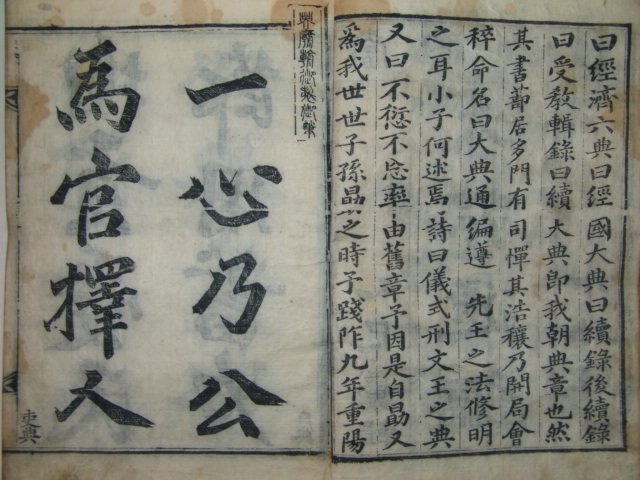 曰經濟六典曰經國大典曰續錄後續錄
曰受敎輯錄曰續大典卽我朝典章也然
其書蔀居多門有司憚其浩穰乃開局會
稡命名曰大典通編遵先王之法修明
之耳小子何述焉詩曰儀式刑文王之典
又曰不愆不忘率由舊章予因是自勗又
爲我世世子孫勗之時予踐阼九年重陽
御製御筆
一心乃公
爲官擇人
吏典